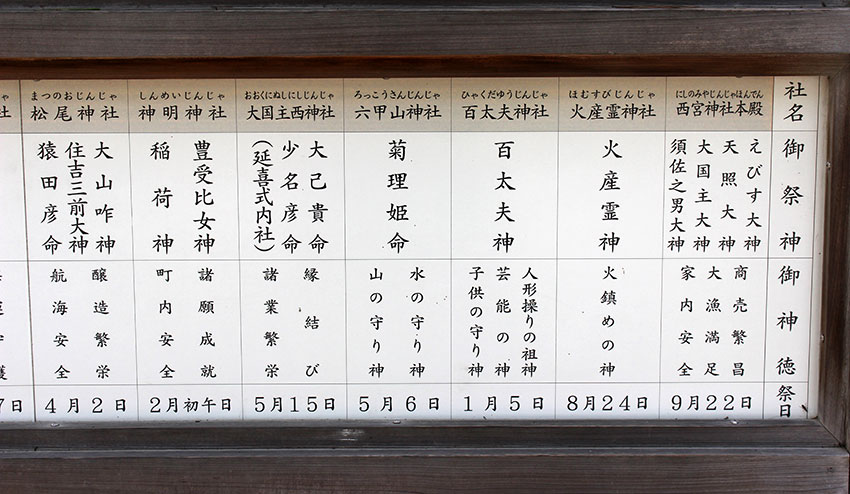 社名
御祭神
御神徳
祭日
にしのみやじんじゃほんでん
西宮神社本殿
えびす大神
天照大神
大国主大神
須佐之男大神
商売繁昌
大漁満足
家内安全
9月22日
ほむすびじんじゃ
火産霊神社
火産霊神
火鎮めの神
8月24日
ひゃくだゆうじんじゃ
百太夫神社
百太夫神
人形操りの祖神
芸能の神
子供の守り神
1月5日
ろっこうさんじんじゃ
六甲山神社
菊理姫命
水の守り神
山の守り神
5月6日
おおくにぬしにしじんじゃ
大国主西神社
大己貴命
少名彦命
(延喜式内社)
縁結び
諸業繁栄
5月15日
しんめいじんじゃ
神明神社
豊受比女神
稲荷神
諸願成就
町内安全
2月初午日
まつのおじんじゃ
松尾神社
大山咋神
住吉三前大神
猿田彦命
醸造繁栄
航海安全
4月2日
社
7日